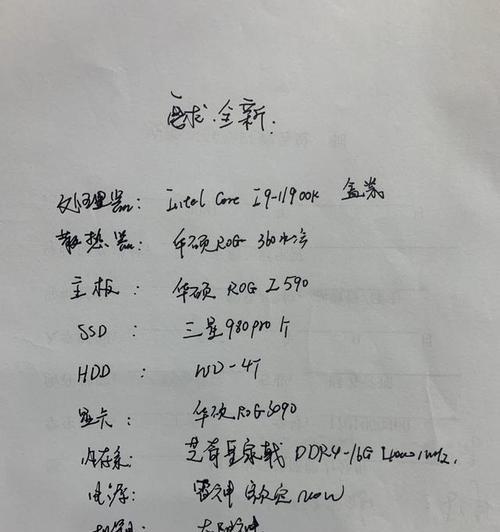 要求:全新.
处理器: Intel Core I9-11900K 盒装
散热器: 华硕ROG 360水冷
主板: 华硕 ROG Z590
SSD: 三星980pro 1T
HDD: WD-4T
显卡: 华硕ROG3090
内存条: 芝奇皇家戟 DDR4-16G
电源: 雷神